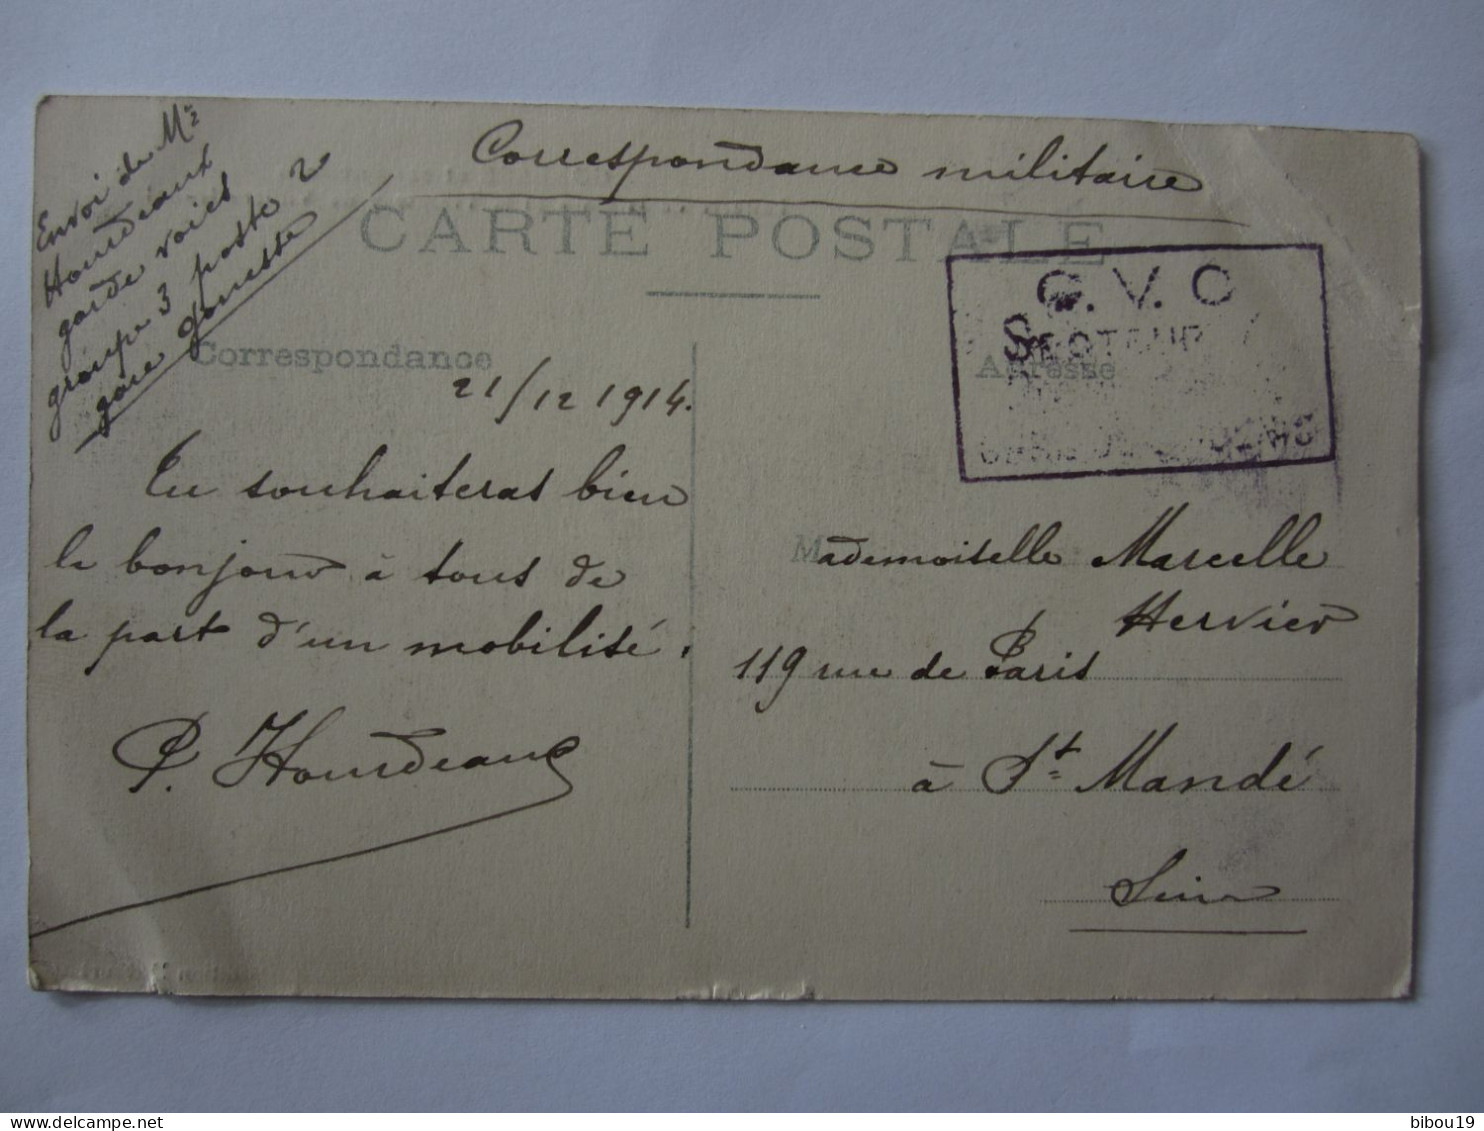 Envoi de Mr
Hourdeaux
garde voies
groupe 3 poste 2
gare gonesse
Correspondance militaire
CARTE POSTALE
G. V. C
SECTEUR
Correspondance
Adresse
21/12 1914.
Tu souhaiteras bien
le bonjour à tous de
la part d'un mobilisé.
P. Hourdeaux
Mademoiselle Marcelle
Hervier
119 rue de Paris
à St Mandé
Seine
bibou19